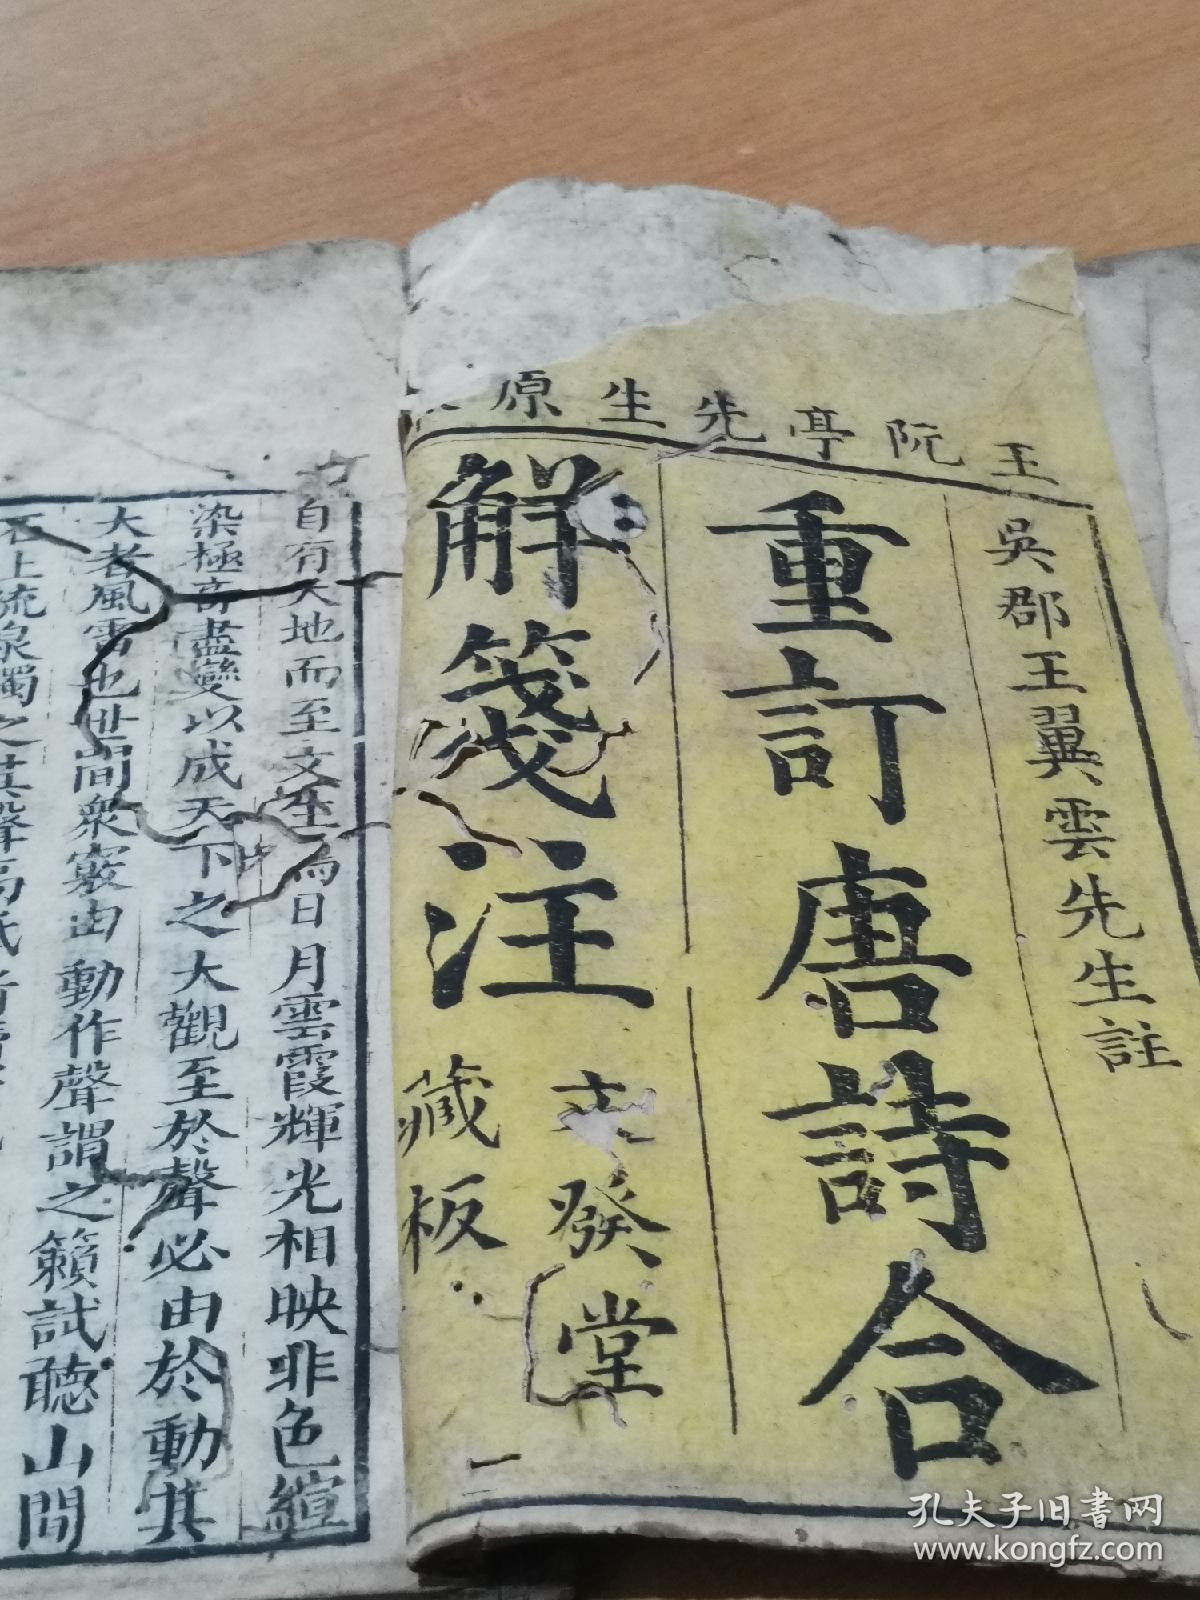 王阮亭先生原
吳郡王翼雲先生註
重訂唐詩合
解箋注
癸堂
藏板
自有天地而至文生焉日月雲霞輝光相映非色繪
染極高盡變以成天下之大觀至於聲必由於動其
大者風雷也世間衆竅由動作聲謂之籟試聽山間
石上流泉
孔夫子旧书网
www.kongfz.com